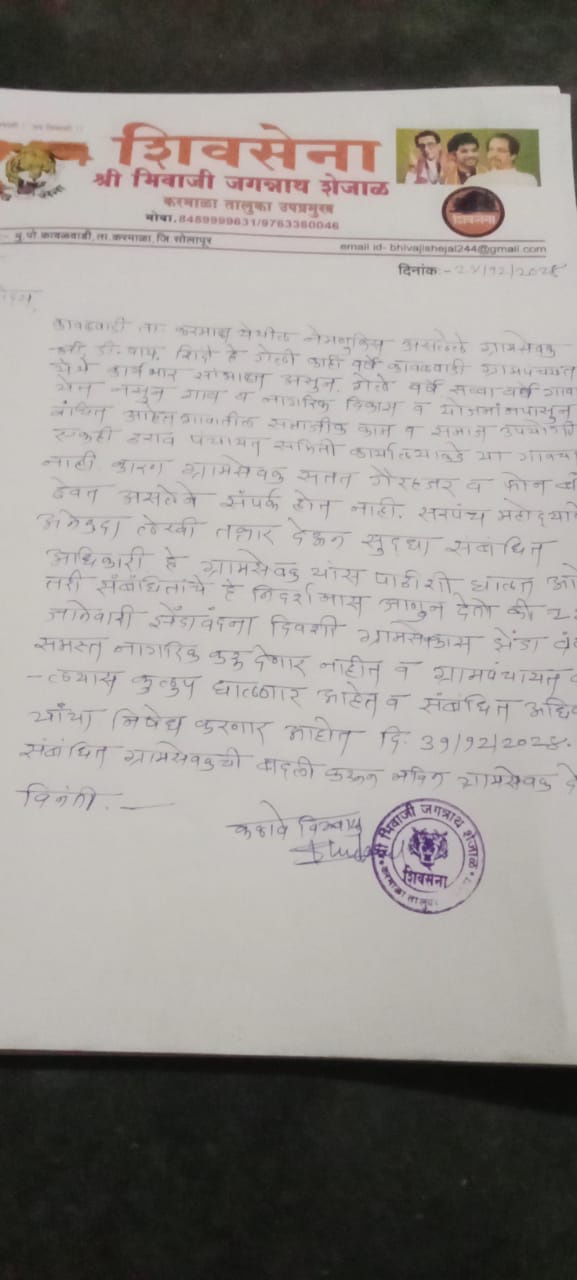 शिवसेना
श्री भिवाजी जगन्नाथ शेजाळ
करमाळा तालुका उपप्रमुख
मोबा.8459999631/9763360046
शिवसेना
मु.पो.कावळवाडी,ता.करमाळा,जि.सोलापूर
email id- bhivajishejal244@gmail.com
दिनांक:-
कावळवाडी ता. करमाळा येथील नेमणुकिस असलेले ग्रामसेवक
श्री. डी. वाय. शिंदे हे गेली काही वर्षे कावळवाडी ग्रामपंचायत
येथे कार्यभार सांभाळत असुन, गेले वर्ष सव्वा वर्षे गाव
येत नसुन गाव व नागरिक विकास व योजनांपासुन
वंचित आहेत गावातील सामाजीक काम व समाज उपयोगी
एकही ठराव पंचायत समिती कार्यालयाकडे या गावचा
नाही. कारण ग्रामसेवक सतत गैरहजर व फोन बं
ठेवत असलेने संपर्क होत नाही. सरपंच महोदयांने
अनेकदा लेखी तक्रार देऊन सुद्धा संबंधित
अधिकारी हे ग्रामसेवक यांस पाठीशी घालत आहे
तरी संबंधितांचे हे निदर्शनास आणुन देतो की 2
जानेवारी झेंडावंदना दिवशी ग्रामसेवकास झेंडा वं
समस्त नागरिक करू देणार नाहीत व ग्रामपंचायत
-लयास कुलुप घालणार आहेत व संबंधित अधि
यांचा निषेध करणार आहोत दि. 31/12/2024.
संबंधित ग्रामसेवकची बदली करून नविन ग्रामसेवक दे
विनंती. —
कळावे
श्री भिवाजी जगन्नाथ शेजाळ
शिवसेना
करमाळा तालुका